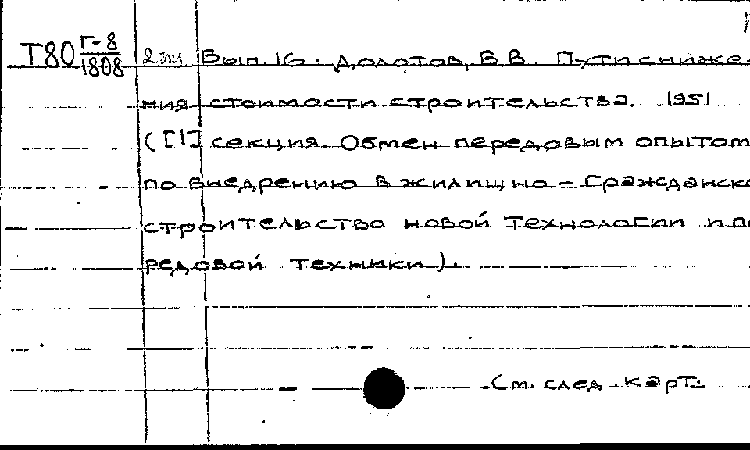 Т80 Г-8/1808 2 экз Вып. 16. Долотов, В В. Пути сниже
ния стоимости строительства. 1951
([1] секция. Обмен передовым опытом
по внедрению в жилищно-гражданско
строительство новой технологии и пе
редовой техники).
См. след. карт.